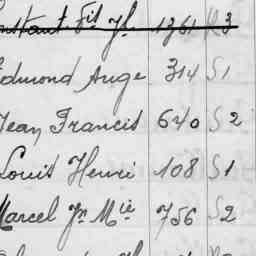 Constant Fis Jh 1361 R 3
Edmond Auge 314 S 1
Jean Francis 640 S 2
Louis Henri 108 S 1
Marcel Jn Mie 756 S 2